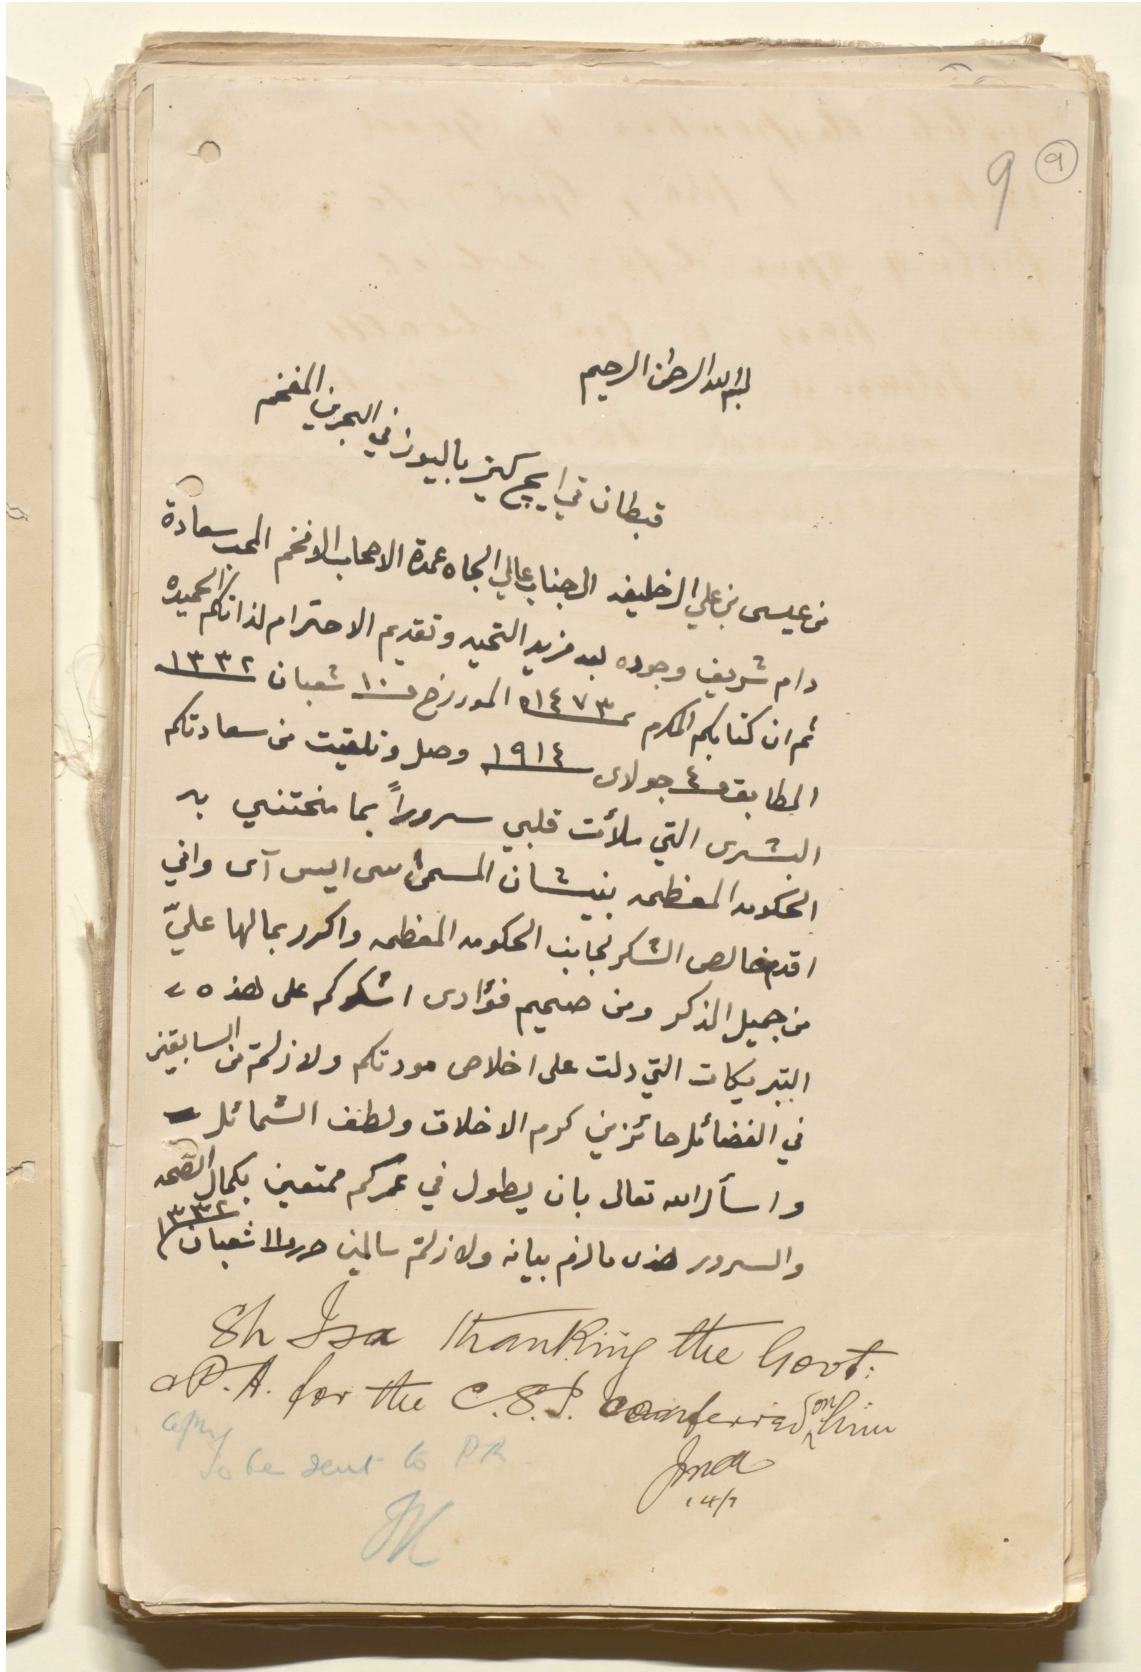 9
9
بسم الله الرحمن الرحيم
من عيسى بن علي الخليفه الى جناب عالي الجاه عمدة الاصحاب الافخم المحب سعادة
قبطان تي ايج كيز باليوز في البحرين المفخم
دام شريف وجوده بعد مزيد التحيه وتقديم الاحترام لذاتكم الحميده
ثم ان كتابكم المكرم ١٤٧٣ المورخ ١٠ شعبان ١٣٣٢
المطابق ٤ جولاى ١٩١٤ وصل وتلقيت من سعادتكم
البشرى التي ملأت قلبي سروراً بما منحتني به
الحكومه المعظمه بنيشان المسمى سى ايس آى واني
اقدم خالص الشكر لجانب الحكومه المعظمه واكرر بمالها عليّ
من جميل الذكر ومن صميم فؤادى اشكركم على هذه
التبريكات التي دلت على اخلاص مودتكم ولازلتم من السابقين
في الفضائل حائزين كرم الاخلاق ولطف الشمائل
واسأل الله تعالى بان يطول في عمركم ممتعين بكمال الصحه
والسرور هذى مالزم بيانه ولازلتم سالمين حرر ١١ شعبان ١٣٣٢
Sh Isa thanking the Govt:
& P.A. for the C.S.I. conferred on him
14/7
Copy
To be sent to P.R.